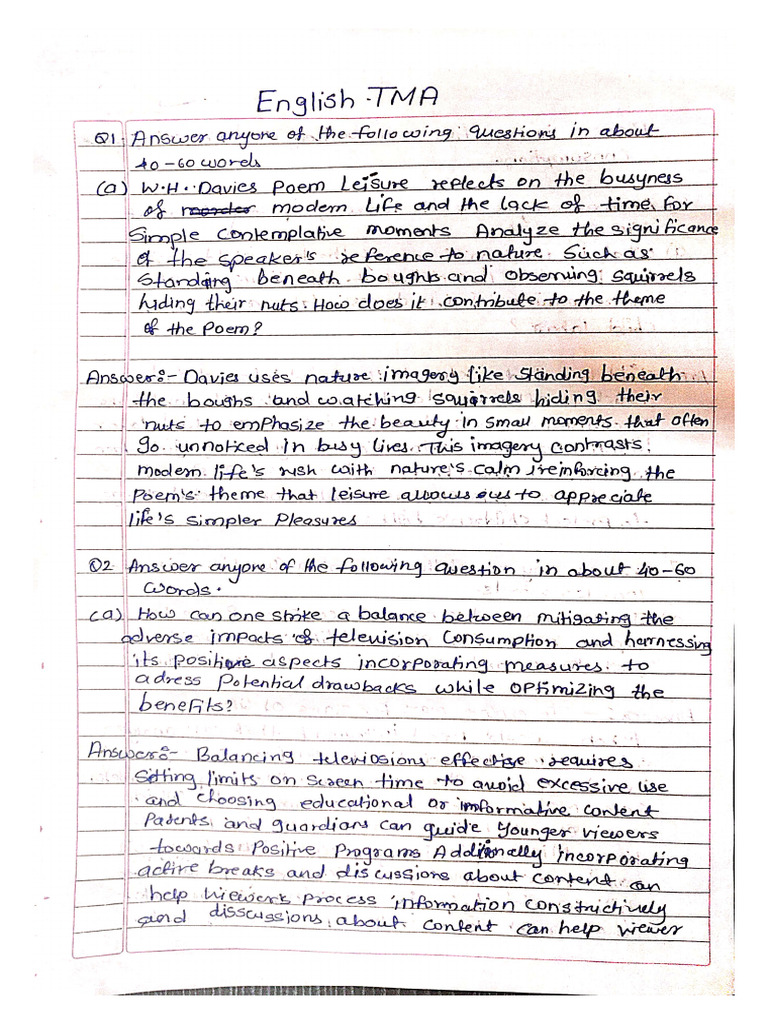 English TMA
Q1. Answer anyone of the following questions in about
40-60 words
(a) W.H. Davies Poem Leisure reflects on the busyness
of modern Life and the lack of time for
Simple Contemplative moments Analyze the significance
of the speaker's reference to nature Such as
Standing beneath boughs and observing squirrels
hiding their nuts. How does it contribute to the theme
of the Poem?
Answer:- Davies uses nature imagery like standing beneath
the boughs and watching squirrels hiding their
nuts to emphasize the beauty in small moments that often
go unnoticed in busy lives. This imagery contrasts
modern life's rush with nature's calm reinforcing the
Poem's theme that leisure allows us to appreciate
life's simpler Pleasures
Q2 Answer anyone of the following question in about 40-60
words.
(a) How can one strike a balance between mitigating the
adverse impacts of television Consumption and harnessing
its positive aspects incorporating measures to
adress Potential drawbacks while optimizing the
benefits?
Answer:- Balancing televiosions effective requires
Setting limits on screen time to avoid excessive use
and choosing educational or informative content
Parents and guardians can guide younger viewers
towards Positive Programs Additionally incorporating
active breaks and discussions about content can
help viewers process information constrictively
and disscussions about content can help viewer